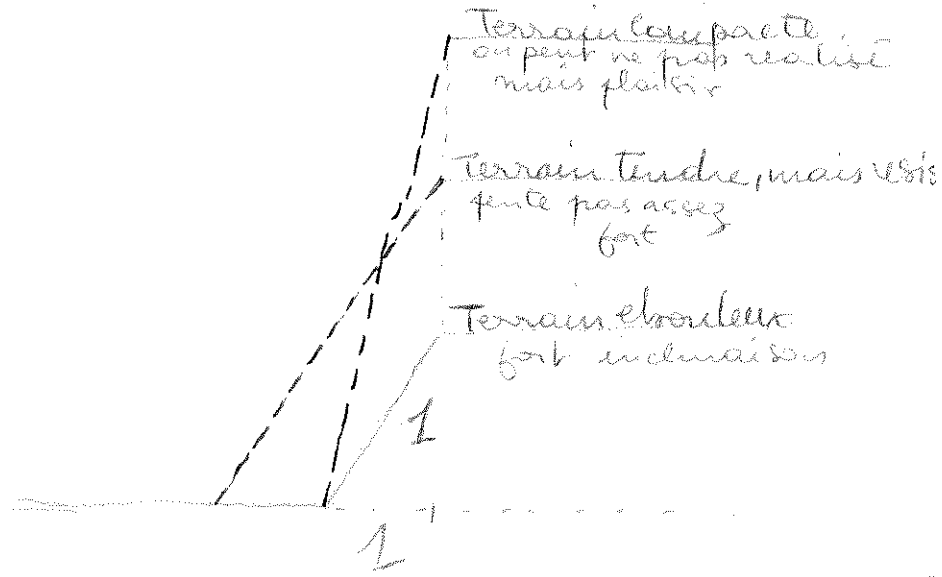 Terrain Compacte,
on peut ne pas realisé
mais plaisir
Terrain tendre, mais résis
pente pas assez
fort
Terrain ebouleux
fort inclinaison
1
1